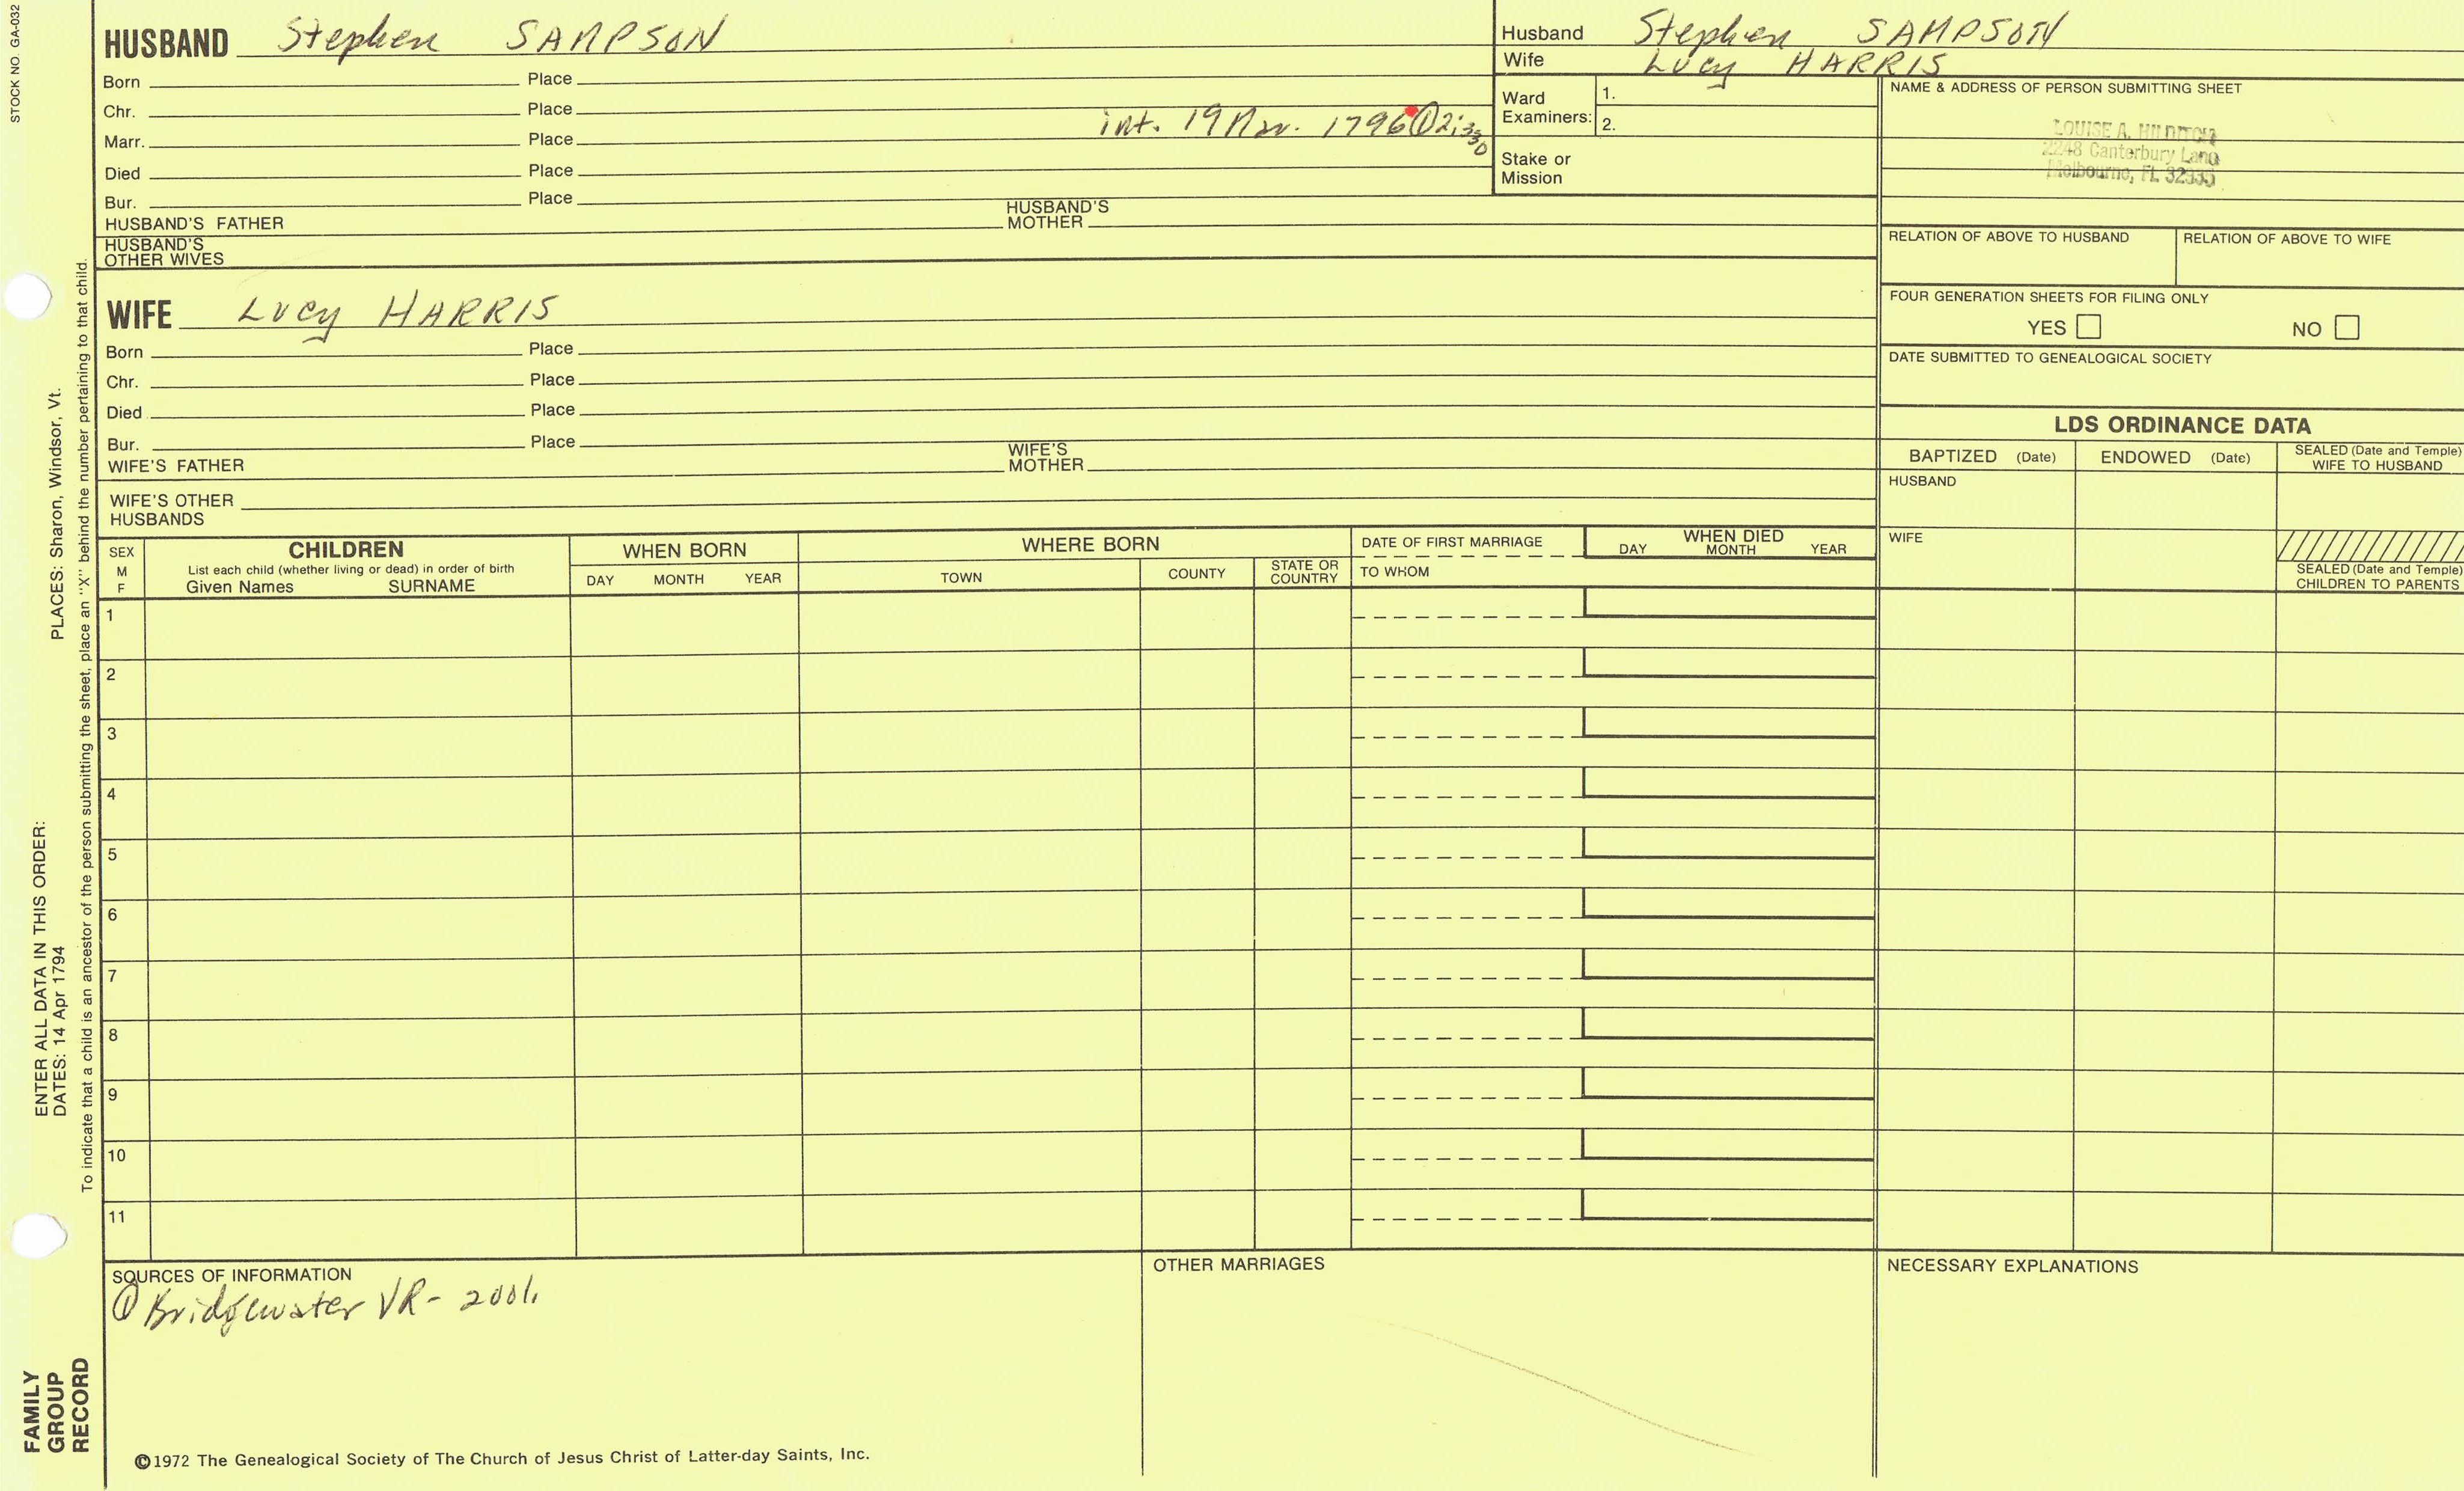 STOCK NO. GA-032
HUSBAND Stephen SAMPSON
Born Place
Chr. Place
Marr. Place int. 19 Nov. 1796 ① 2:330
Died Place
Bur. Place
HUSBAND'S FATHER HUSBAND'S MOTHER
HUSBAND'S OTHER WIVES
Husband Stephen SAMPSON
Wife Lucy HARRIS
Ward Examiners: 1.
2.
Stake or Mission
NAME & ADDRESS OF PERSON SUBMITTING SHEET
LOUISE A. HILDITCH
2248 Canterbury Lane
Melbourne, FL 32935
RELATION OF ABOVE TO HUSBAND RELATION OF ABOVE TO WIFE
FOUR GENERATION SHEETS FOR FILING ONLY
YES NO
DATE SUBMITTED TO GENEALOGICAL SOCIETY
WIFE Lucy HARRIS
Born Place
Chr. Place
Died Place
Bur. Place
WIFE'S FATHER WIFE'S MOTHER
WIFE'S OTHER HUSBANDS
LDS ORDINANCE DATA
BAPTIZED (Date) ENDOWED (Date) SEALED (Date and Temple) WIFE TO HUSBAND
HUSBAND
WIFE
SEALED (Date and Temple) CHILDREN TO PARENTS
SEX M F
CHILDREN
List each child (whether living or dead) in order of birth
Given Names SURNAME
WHEN BORN
DAY MONTH YEAR
WHERE BORN
TOWN COUNTY STATE OR COUNTRY
DATE OF FIRST MARRIAGE
TO WHOM
WHEN DIED
DAY MONTH YEAR
1
2
3
4
5
6
7
8
9
10
11
SOURCES OF INFORMATION
① Bridgewater VR-
OTHER MARRIAGES
NECESSARY EXPLANATIONS
©1972 The Genealogical Society of The Church of Jesus Christ of Latter-day Saints, Inc.
FAMILY GROUP RECORD
ENTER ALL DATA IN THIS ORDER:
DATES: 14 Apr 1794 PLACES: Sharon, Windsor, Vt.
To indicate that a child is an ancestor of the person submitting the sheet, place an "X" behind the number pertaining to that child.